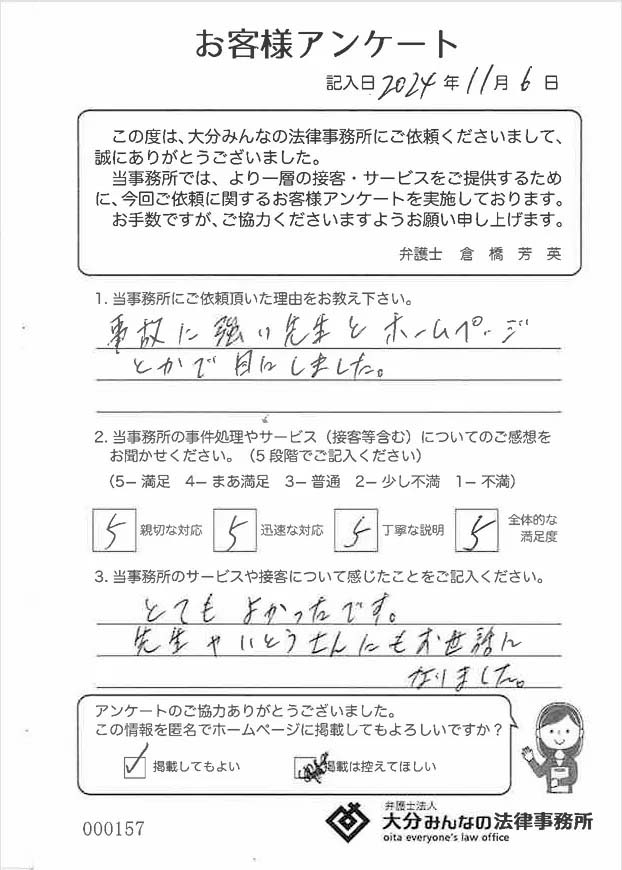 お客様アンケート
記入日 2024 年 11 月 6 日
この度は、大分みんなの法律事務所にご依頼くださいまして、
誠にありがとうございました。
当事務所では、より一層の接客・サービスをご提供するため
に、今回ご依頼に関するお客様アンケートを実施しております。
お手数ですが、ご協力くださいますようお願い申し上げます。
弁護士 倉橋芳英
1. 当事務所にご依頼頂いた理由をお教え下さい。
事故に強い先生とホームページ
とかで目にしました。
2. 当事務所の事件処理やサービス（接客等含む）についてのご感想を
お聞かせください。（5段階でご記入ください）
（5− 満足 4− まあ満足 3− 普通 2− 少し不満 1− 不満）
5 親切な対応 5 迅速な対応 5 丁寧な説明 5 全体的な
満足度
3. 当事務所のサービスや接客について感じたことをご記入ください。
とてもよかったです。
先生やいとうさんにもお世話に
なりました。
アンケートのご協力ありがとうございました。
この情報を匿名でホームページに掲載してもよろしいですか？
✓ 掲載してもよい 掲載は控えてほしい
000157
弁護士法人
大分みんなの法律事務所
oita everyone's law office